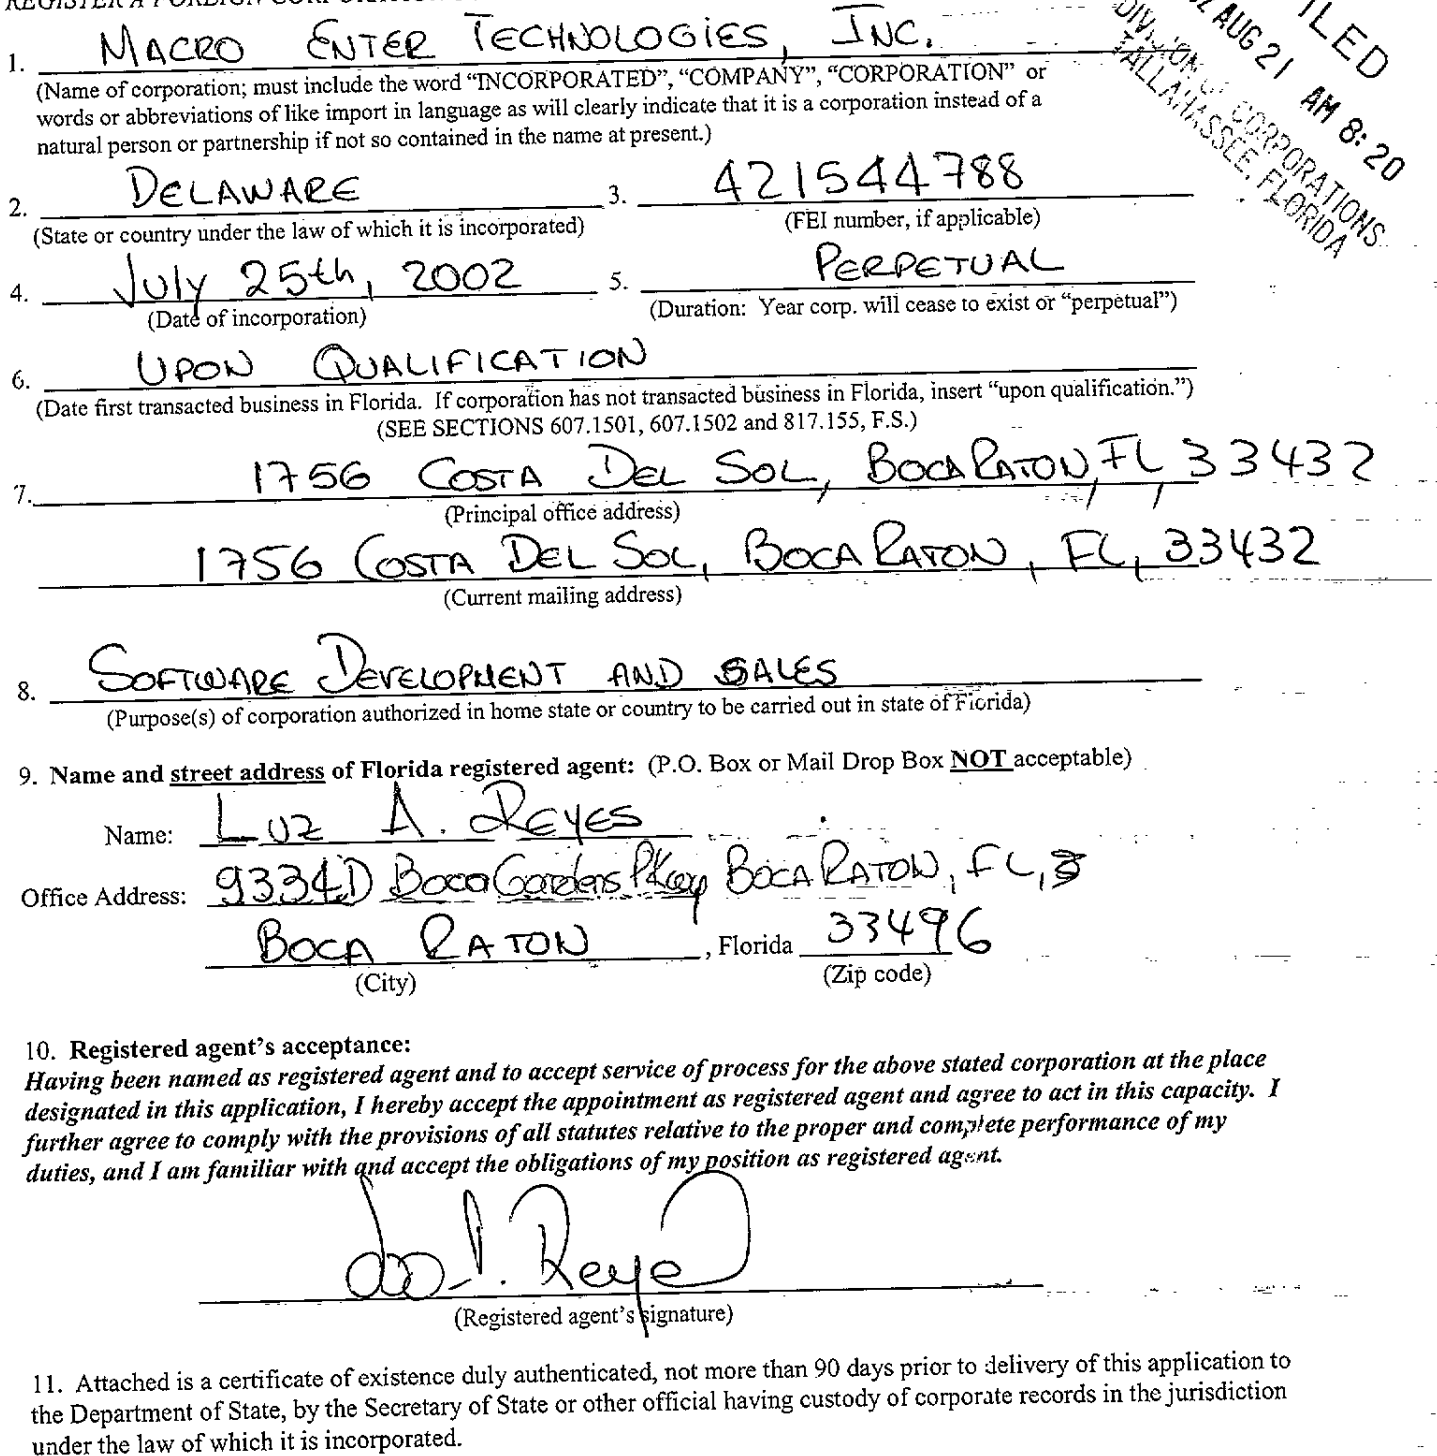 1. MACRO ENTER TECHNOLOGIES, INC.
(Name of corporation; must include the word “INCORPORATED”, “COMPANY”, “CORPORATION” or
words or abbreviations of like import in language as will clearly indicate that it is a corporation instead of a
natural person or partnership if not so contained in the name at present.)
FILED
02 AUG 21 AM 8:20
DIVISION OF CORPORATIONS
TALLAHASSEE, FLORIDA
2. DELAWARE 3. 421544788
(State or country under the law of which it is incorporated) (FEI number, if applicable)
4. July 25th, 2002 5. PERPETUAL
(Date of incorporation) (Duration: Year corp. will cease to exist or “perpetual”)
6. UPON QUALIFICATION
(Date first transacted business in Florida. If corporation has not transacted business in Florida, insert “upon qualification.”)
(SEE SECTIONS 607.1501, 607.1502 and 817.155, F.S.)
7. 1756 COSTA DEL SOL, BOCA RATON, FL, 33432
(Principal office address)
1756 COSTA DEL SOL, BOCA RATON, FL, 33432
(Current mailing address)
8. SOFTWARE DEVELOPMENT AND SALES
(Purpose(s) of corporation authorized in home state or country to be carried out in state of Florida)
9. Name and street address of Florida registered agent: (P.O. Box or Mail Drop Box NOT acceptable)
Name: Luz A. REYES
Office Address: 9334D Boca Gardens PKwy BOCA RATON, FL, 3
BOCA RATON, Florida 33496
(City) (Zip code)
10. Registered agent’s acceptance:
Having been named as registered agent and to accept service of process for the above stated corporation at the place
designated in this application, I hereby accept the appointment as registered agent and agree to act in this capacity. I
further agree to comply with the provisions of all statutes relative to the proper and complete performance of my
duties, and I am familiar with and accept the obligations of my position as registered agent.
(Registered agent’s signature)
11. Attached is a certificate of existence duly authenticated, not more than 90 days prior to delivery of this application to
the Department of State, by the Secretary of State or other official having custody of corporate records in the jurisdiction
under the law of which it is incorporated.